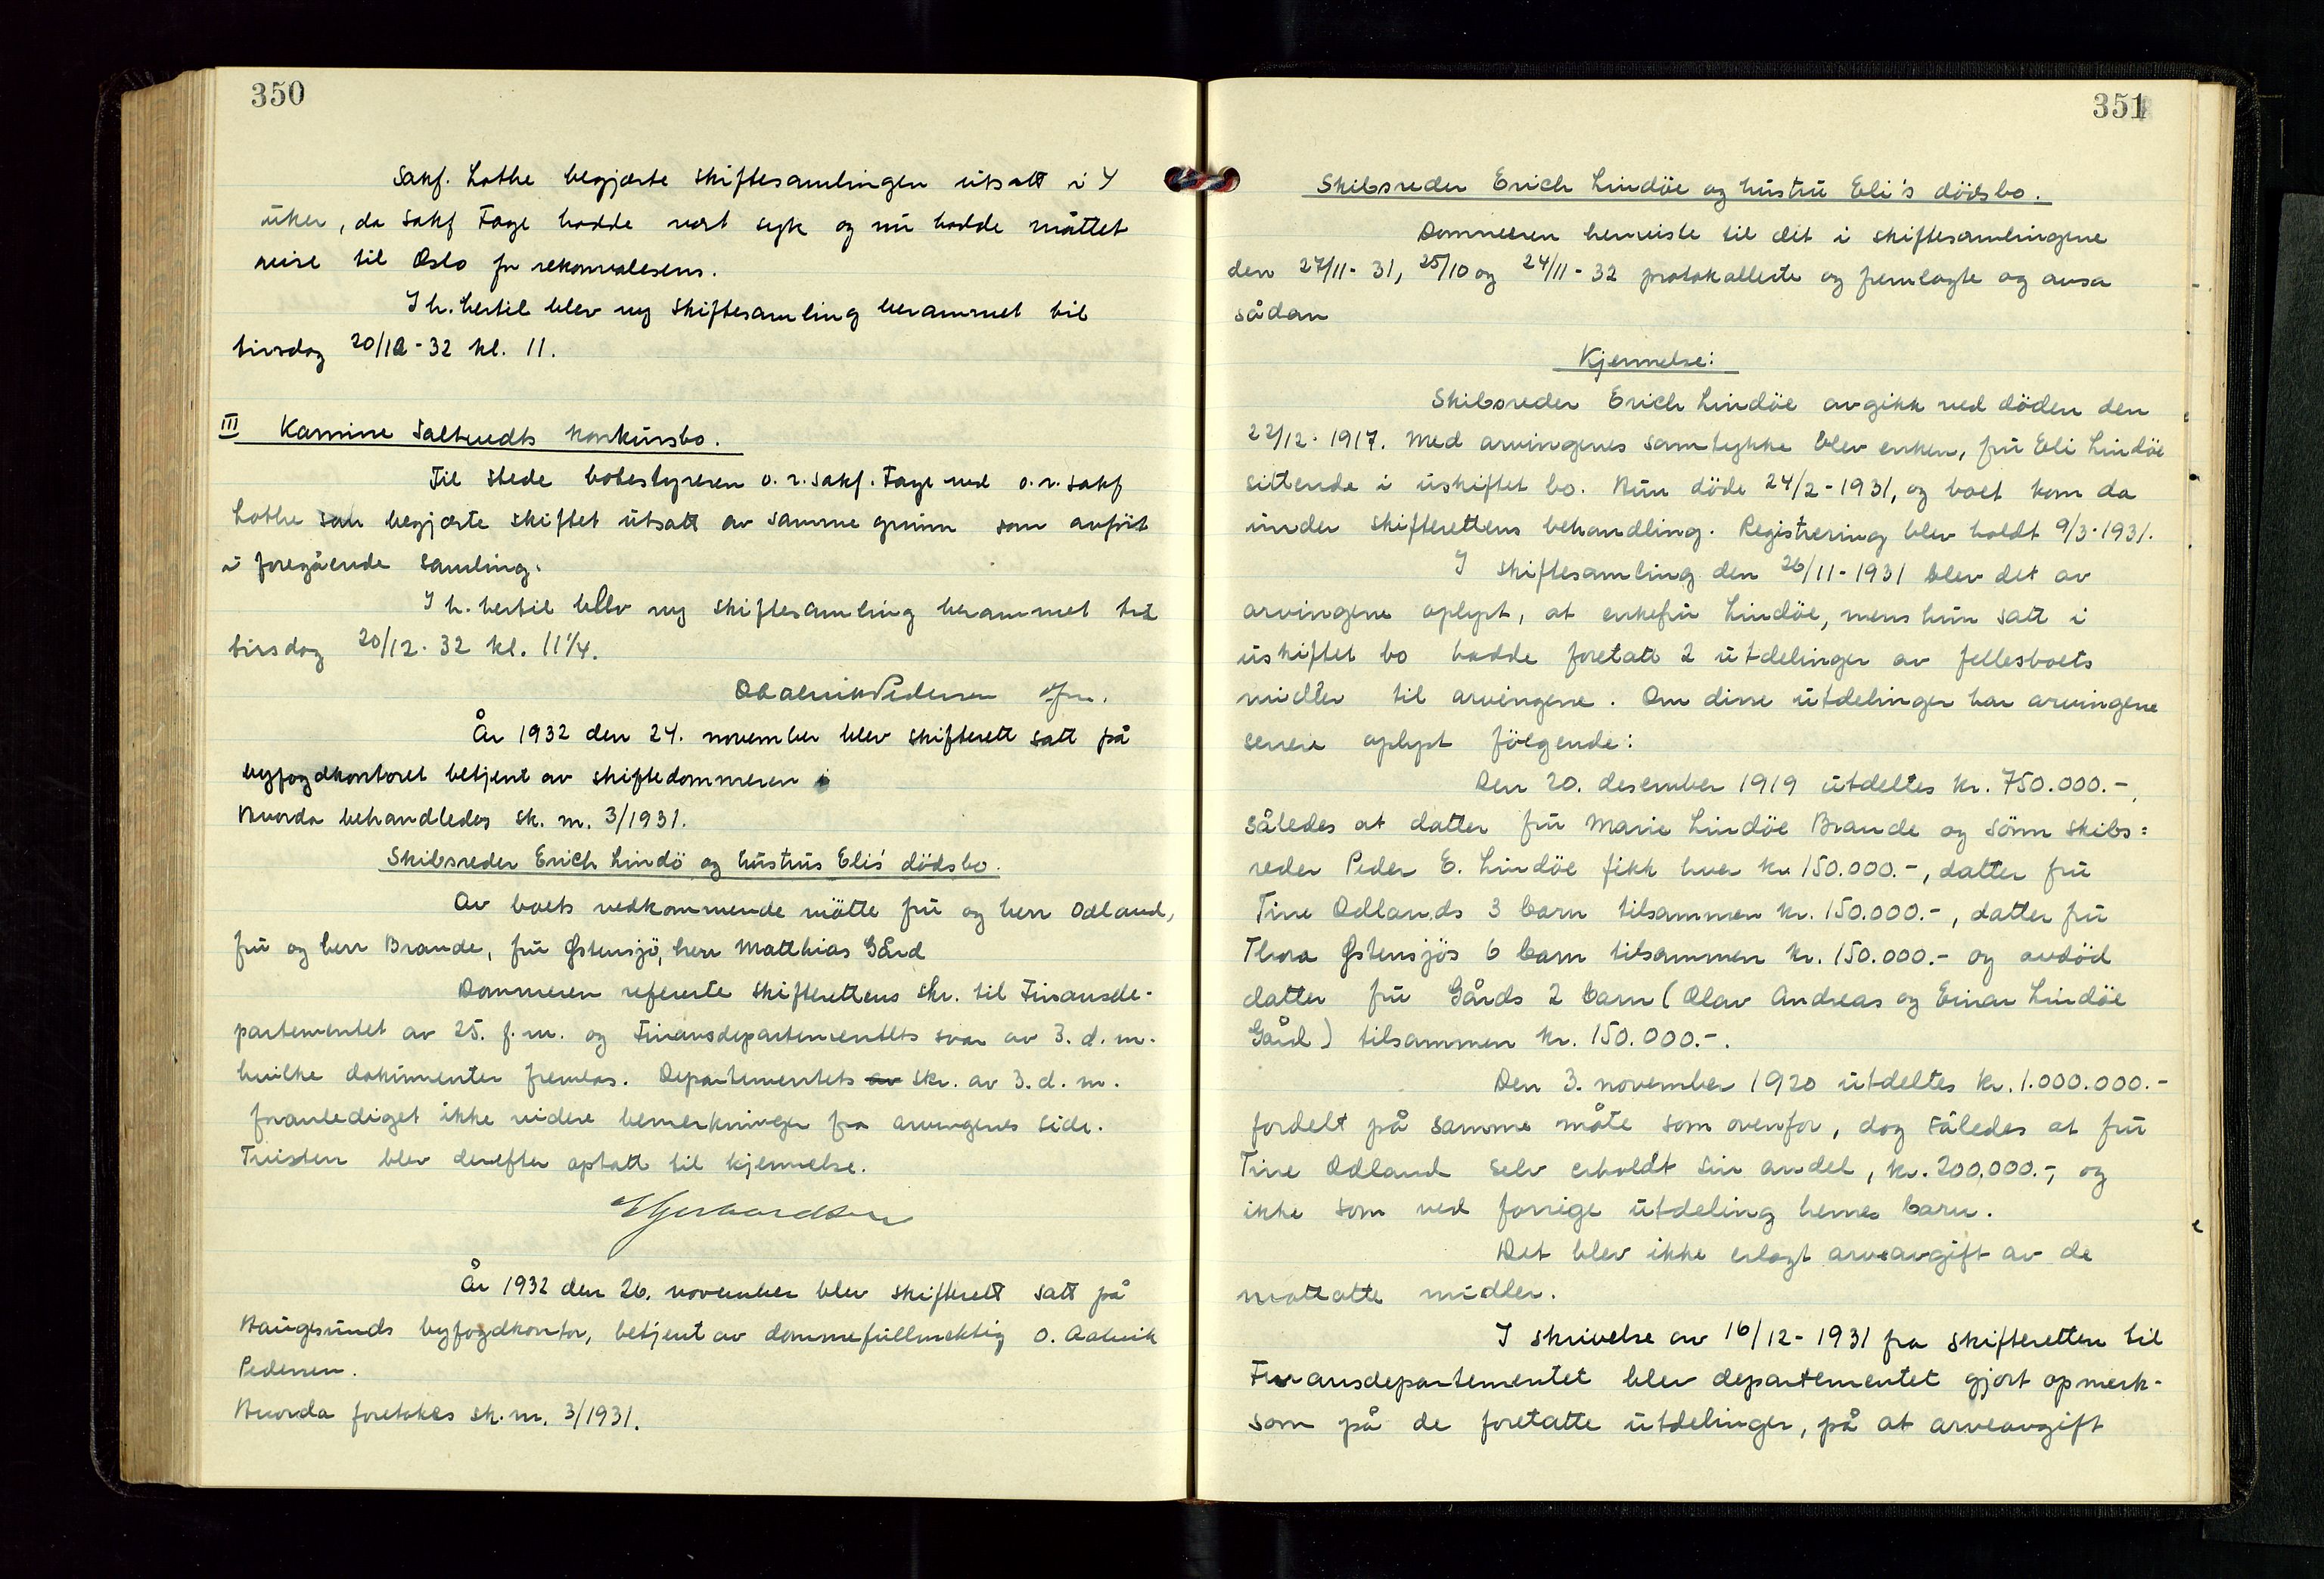 350
Sakf. Lothe begjærte skiftesamlingen utsatt i 4
uker, da sakf Fage hadde vært syk og nu hadde måttet
reise til Oslo for rekonvalesens.
I h. hertil blev ny skiftesamling berammet til
tirsdag 20/12-32 kl. 11.
III Kamine Saltvedts konkursbo.
Til stede bobestyreren o.r.sakf. Fage ved o.r. sakf
Lothe som begjærte skiftet utsatt av samme grunn som anført
i foregående samling.
I h. hertil blev ny skiftesamling berammet til
tirsdag 20/12-32 kl. 11 1/4.
O Aalvik Pedersen dfm.
År 1932 den 24. november blev skifterett satt på
byfogdkontoret betjent av skiftedommeren
Hvorda behandledes sk. nr. 3/1931.
Skibsreder Erich Lindö og hustrus Elis' dödsbo.
Av boets vedkommende mötte fru og herr Odland,
fru og herr Brande, fru Østensjö, herr Matthias Gård
Dommeren refererte skifterettens skr. til Finansde-
partementet av 25. f.m. og Finansdepartementets svar av 3. d. m.
hvilke dokumenter fremlas. Departementets av skr. av 3. d. m.
foranlediget ikke videre bemerkninger fra arvingenes side.
Tvisten blev derefter optatt til kjennelse.
År 1932 den 26. november blev skifterett satt på
Haugesunds byfogdkontor, betjent av dommefullmektig O. Aalvik
Pedersen.
Hvorda foretokes sk. nr. 3/1931.
351
Skibsreder Erich Lindöe og hustru Eli's dödsbo.
Dommeren henviste til det i skiftesamlingene
den 27/11-31, 25/10 og 24/11-32 protokollerte og fremlagte og avsa
sådan
Kjennelse:
Skibsreder Erich Lindöe avgikk ved döden den
22/12-1917. Med arvingenes samtykke blev enken, fru Eli Lindöe
sittende i uskiftet bo. Hun döde 24/2-1931, og boet kom da
under skifterettens behandling. Registrering blev holdt 9/3-1931.
I skiftesamling den 26/11-1931 blev det av
arvingene oplyst, at enkefru Lindöe, mens hun satt i
uskiftet bo hadde foretatt 2 utdelinger av fellesboets
midler til arvingene. Om disse utdelinger har arvingene
senere oplyst fölgende:
Den 20. desember 1919 utdeltes kr. 750.000.-,
således at datter fru Marie Lindöe Brande og sönn skibs=
reder Peder E. Lindöe fikk hver kr. 150.000.-, datter fru
Tine Odlands 3 barn tilsammen kr. 150.000.-, datter fru
Thora Østensjös 6 barn tilsammen kr. 150.000.- og avdöd
datter fru Gårds 2 barn (Olav Andreas og Einar Lindöe
Gård) tilsammen kr. 150.000.-.
Den 3. november 1920 utdeltes kr. 1.000.000.-
fordelt på samme måte som ovenfor, dog således at fru
Tine Odland selv erholdt sin andel, kr. 200.000.-, og
ikke som ved forrige utdeling hennes barn.
Det blev ikke erlagt arveavgift av de
mottatte midler.
I skrivelse av 16/12-1931 fra skifteretten til
Finansdepartementet blev departementet gjort opmerk-
som på de foretatte utdelinger, på at arveavgift